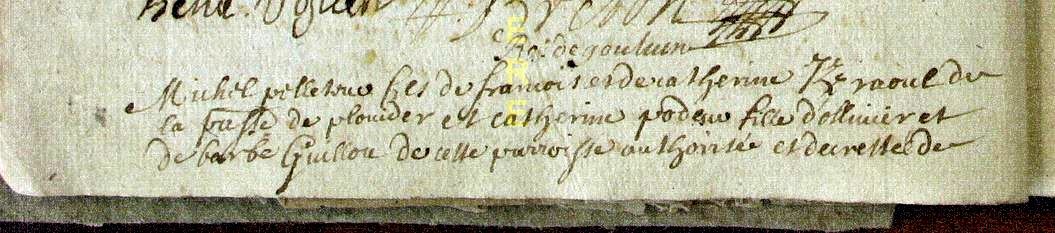 René
Rr: de goulven
Michel pelleteur fils de francois et de catherine Kraoul de
la passe de plouider et catherine podeur fille d'ollivier et
De barbe Guillou de cette parroisse authorisée et decrettée de